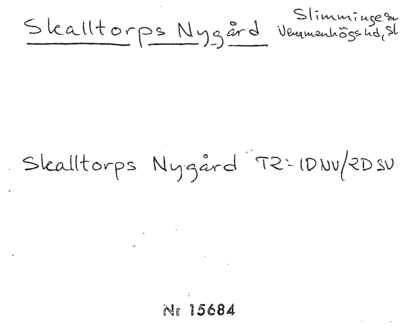 Skalltorps Nygård
Slimminge sn
Vemmenhögs hd, Sk
Skalltorps Nygård T2=1DNV/2DSV
Nr 15684